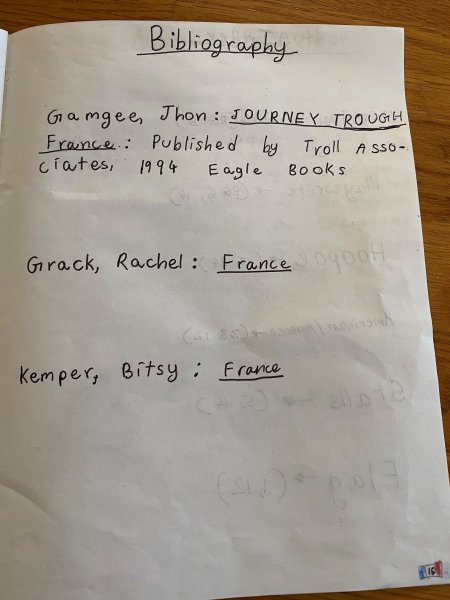 Bibliography
Gamgee, Jhon: JOURNEY TROUGH
France: Published by Troll Asso-
ciates, 1994 Eagle Books
Grack, Rachel: France
Kemper, Bitsy: France